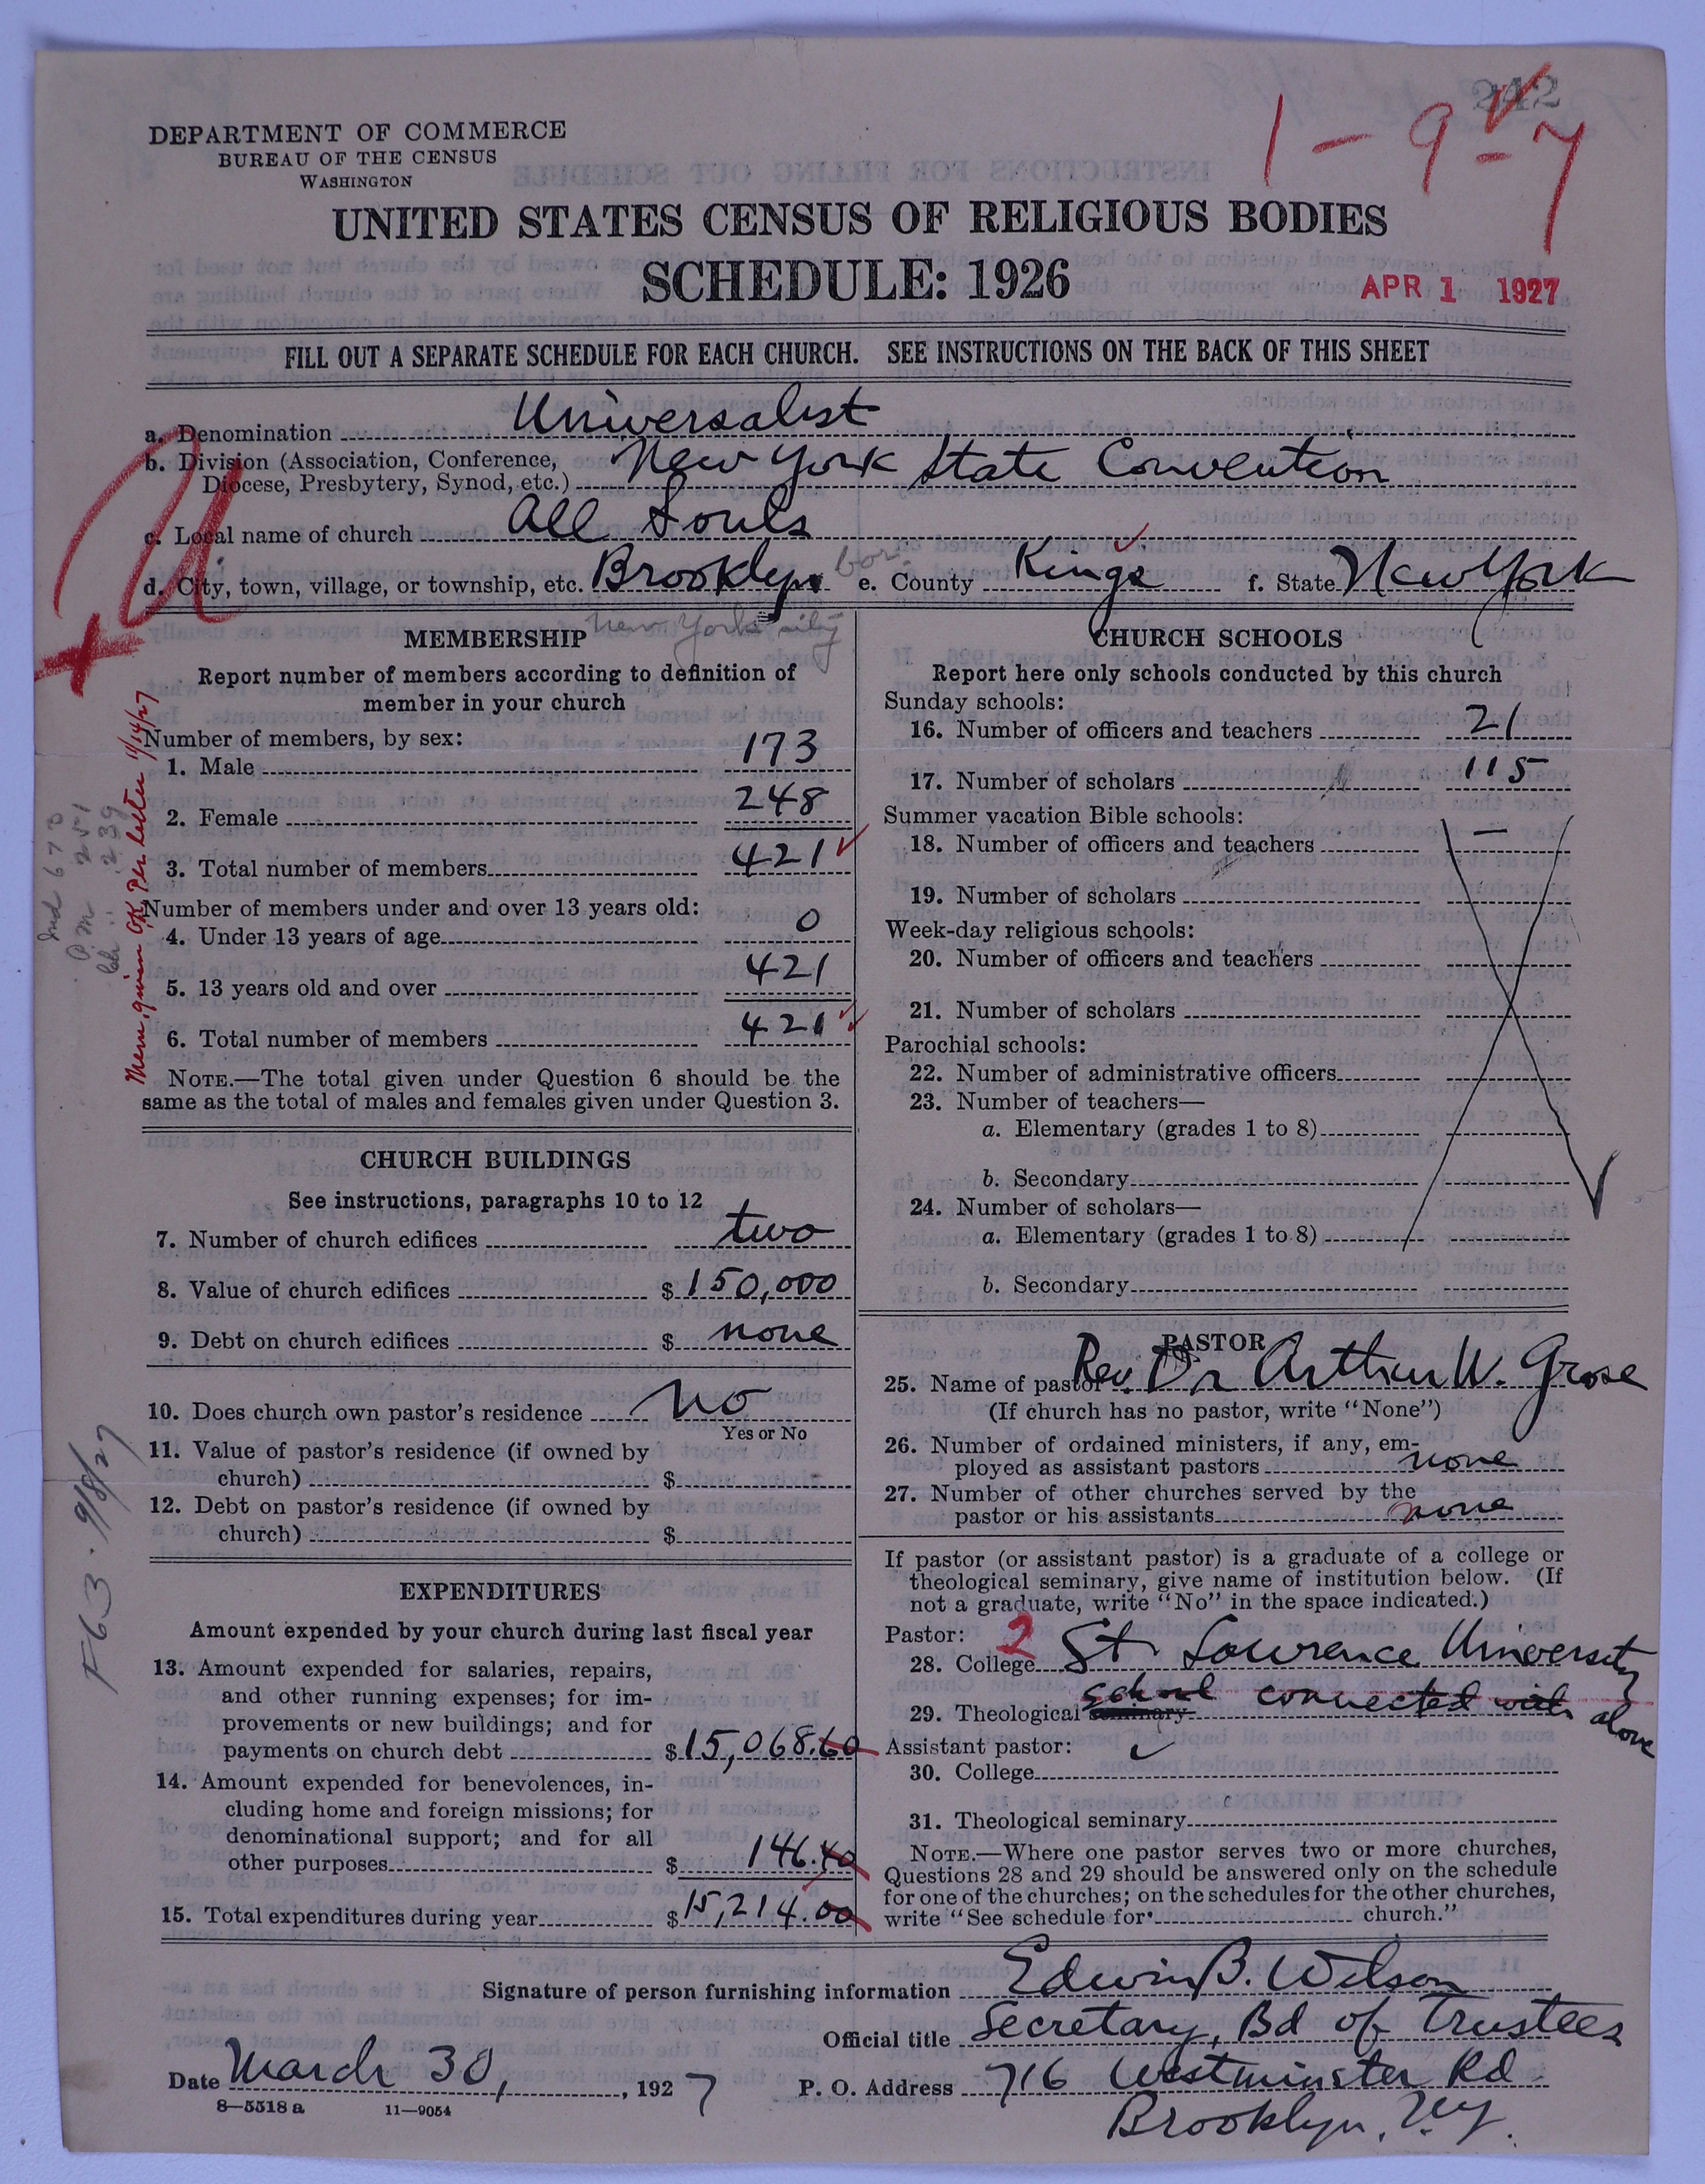 242
1-9-7
DEPARTMENT OF COMMERCE
BUREAU OF THE CENSUS
WASHINGTON
UNITED STATES CENSUS OF RELIGIOUS BODIES
SCHEDULE: 1926
APR 1 1927
FILL OUT A SEPARATE SCHEDULE FOR EACH CHURCH. SEE INSTRUCTIONS ON THE BACK OF THIS SHEET
a. Denomination Universalist
b. Division (Association, Conference, Diocese, Presbytery, Synod, etc.) New York State Convention
c. Local name of church All Souls
d. City, town, village, or township, etc. Brooklyn bor. e. County Kings f. State New York
New York city
MEMBERSHIP
Report number of members according to definition of
member in your church
Number of members, by sex:
1. Male 173
2. Female 248
3. Total number of members 421
Number of members under and over 13 years old:
4. Under 13 years of age 0
5. 13 years old and over 421
6. Total number of members 421
NOTE.—The total given under Question 6 should be the
same as the total of males and females given under Question 3.
Mem. given OK Per letter
CHURCH BUILDINGS
See instructions, paragraphs 10 to 12
7. Number of church edifices two
8. Value of church edifices $ 150,000
9. Debt on church edifices $ none
10. Does church own pastor's residence No
Yes or No
11. Value of pastor's residence (if owned by
church) $
12. Debt on pastor's residence (if owned by
church) $
F63. 9/8/27
EXPENDITURES
Amount expended by your church during last fiscal year
13. Amount expended for salaries, repairs,
and other running expenses; for im-
provements or new buildings; and for
payments on church debt $ 15,068.60
14. Amount expended for benevolences, in-
cluding home and foreign missions; for
denominational support; and for all
other purposes $ 146.40
15. Total expenditures during year $ 15,214.00
CHURCH SCHOOLS
Report here only schools conducted by this church
Sunday schools:
16. Number of officers and teachers 21
17. Number of scholars 115
Summer vacation Bible schools:
18. Number of officers and teachers —
19. Number of scholars
Week-day religious schools:
20. Number of officers and teachers
21. Number of scholars
Parochial schools:
22. Number of administrative officers
23. Number of teachers—
a. Elementary (grades 1 to 8)
b. Secondary
24. Number of scholars—
a. Elementary (grades 1 to 8)
b. Secondary
PASTOR
25. Name of pastor Rev. Dr Arthur W. Grose
(If church has no pastor, write "None")
26. Number of ordained ministers, if any, em-
ployed as assistant pastors none
27. Number of other churches served by the
pastor or his assistants none
If pastor (or assistant pastor) is a graduate of a college or
theological seminary, give name of institution below. (If
not a graduate, write "No" in the space indicated.)
Pastor: 2
28. College St. Lawrence University
29. Theological seminary school connected with above
Assistant pastor:
30. College
31. Theological seminary
NOTE.—Where one pastor serves two or more churches,
Questions 28 and 29 should be answered only on the schedule
for one of the churches; on the schedules for the other churches,
write "See schedule for church."
Signature of person furnishing information Edwin B. Wilson
Official title Secretary, Bd of Trustees
Date March 30, 1927 P. O. Address 716 Westminster Rd
Brooklyn, N.Y.
8—5518 a 11—9054